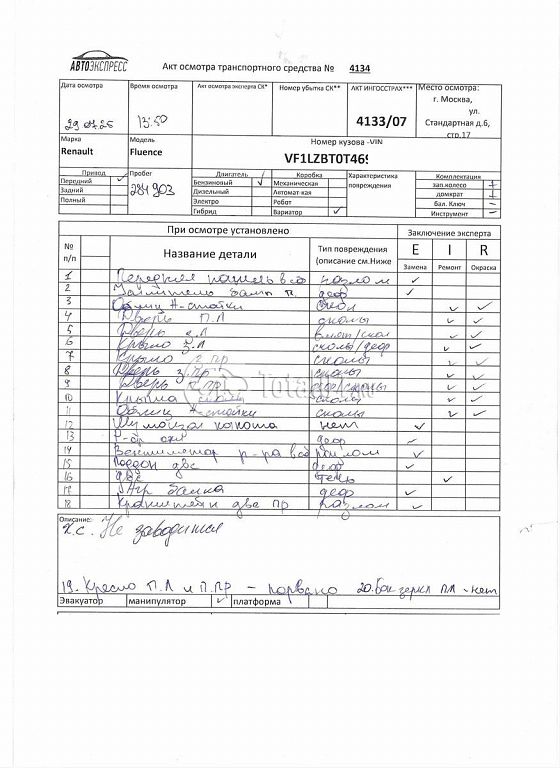 АВТОЭКСПРЕСС
Акт осмотра транспортного средства № 4134
Дата осмотра Время осмотра Акт осмотра эксперта СК* Номер убытка СК** АКТ ИНГОССТРАХ*** Место осмотра:
г. Москва,
ул.
Стандартная д.6,
стр.17
13:50 4133/07
Марка Модель Номер кузова -VIN
Renault Fluence VF1LZBT0T46
Привод Пробег Двигатель Коробка Характеристика повреждения Комплектация
Передний ✓ 284903 Бензиновый ✓ Механическая зап.колесо +
Задний Дизельный Автомат-кая домкрат +
Полный Электро Робот бал. Ключ –
Гибрид Вариатор ✓ Инструмент –
При осмотре установлено Заключение эксперта
№ п/п Название детали Тип повреждения (описание см.Ниже E I R
Замена Ремонт Окраска
1 Передняя панель в сб ✓
2 деф ✓
3 А-стойки ✓ ✓
4 Дверь П.Л сколы ✓ ✓
5 Дверь з.Л ✓ ✓
6 Крыло з.Л сколы/деф ✓ ✓
7 Крыло пр сколы ✓ ✓
8 Дверь з.пр сколы ✓ ✓
9 Дверь пр ✓ ✓
10 Крыша сколы ✓ ✓
11 А-стойки сколы ✓ ✓
12 капота нет ✓
13 деф ✓
14 Вентилятор р-ра в сб ✓
15 Поддон двс деф ✓
16 двс течь ✓
17 деф ✓
18 Кронштейн двс пр разлом ✓
Описание:
Не заводится
19. Кресло П.Л и П.ПР – порвано 20. бок зеркл ПЛ - нет
Эвакуатор манипулятор ✓ платформа